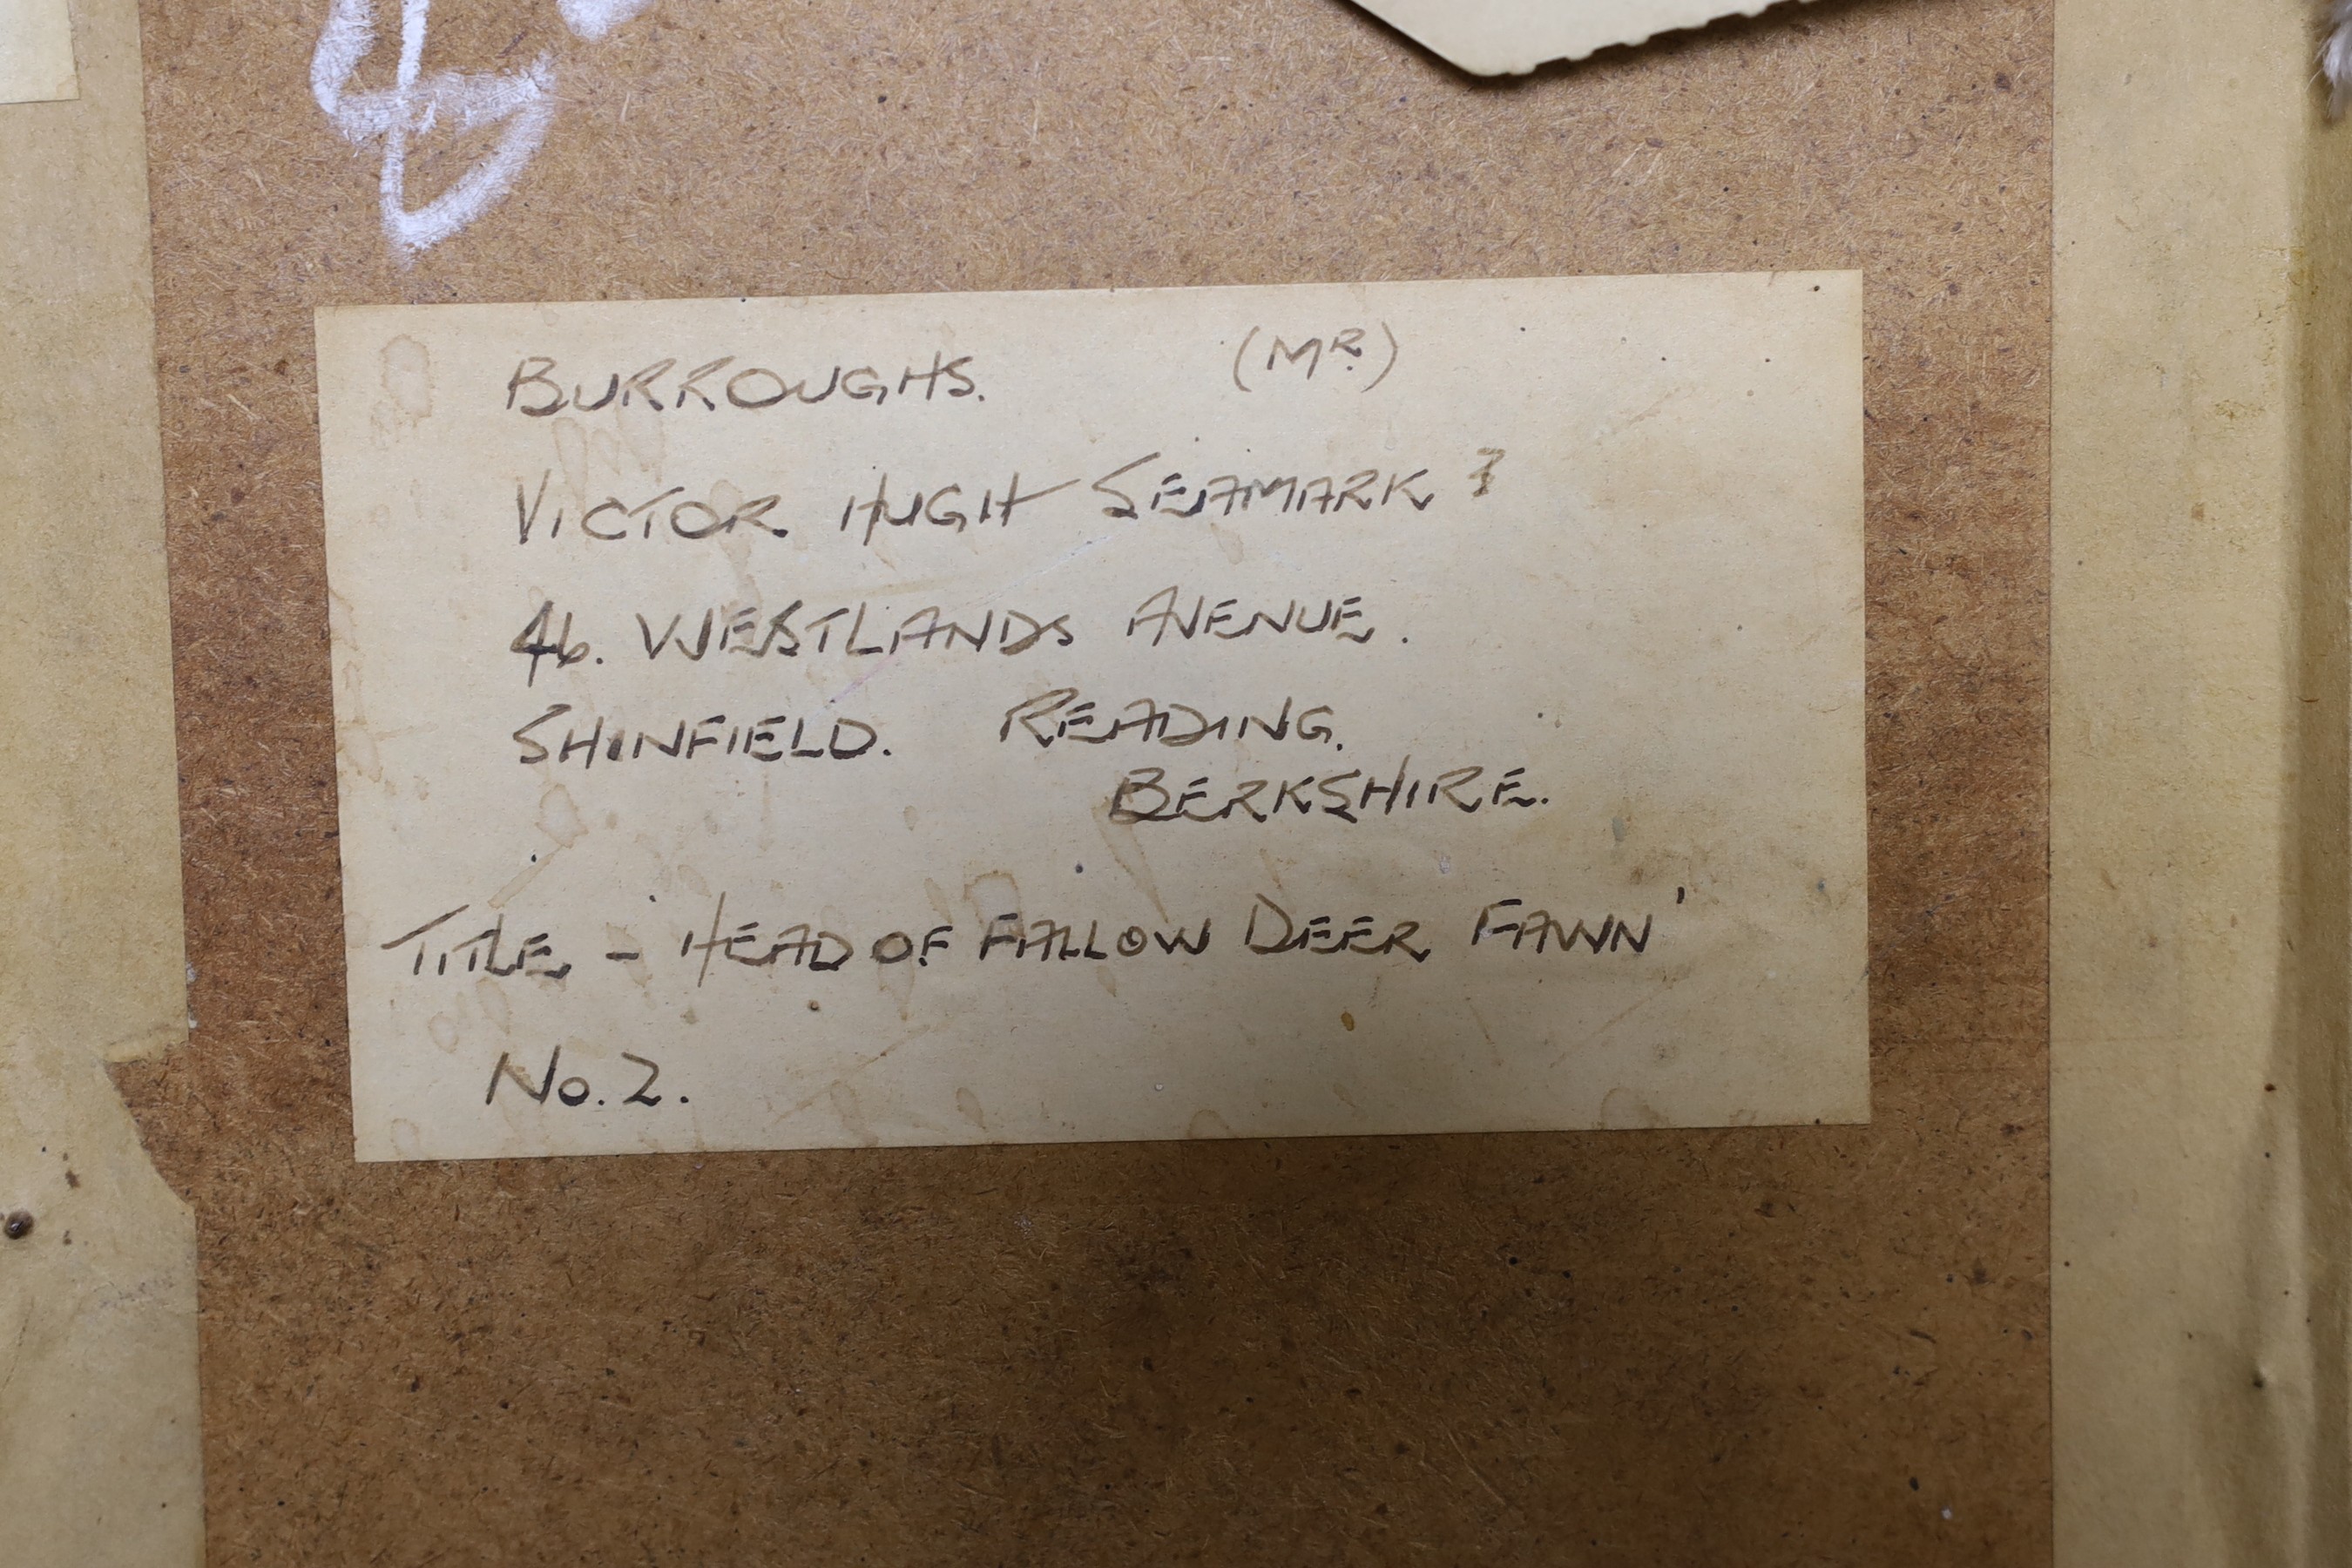 BURROUGHS. (MR)
VICTOR HUGH SEAMARK ?
46. WESTLANDS AVENUE.
SHINFIELD. READING.
BERKSHIRE.
TITLE - 'HEAD OF FALLOW DEER FAWN'
No. 2.